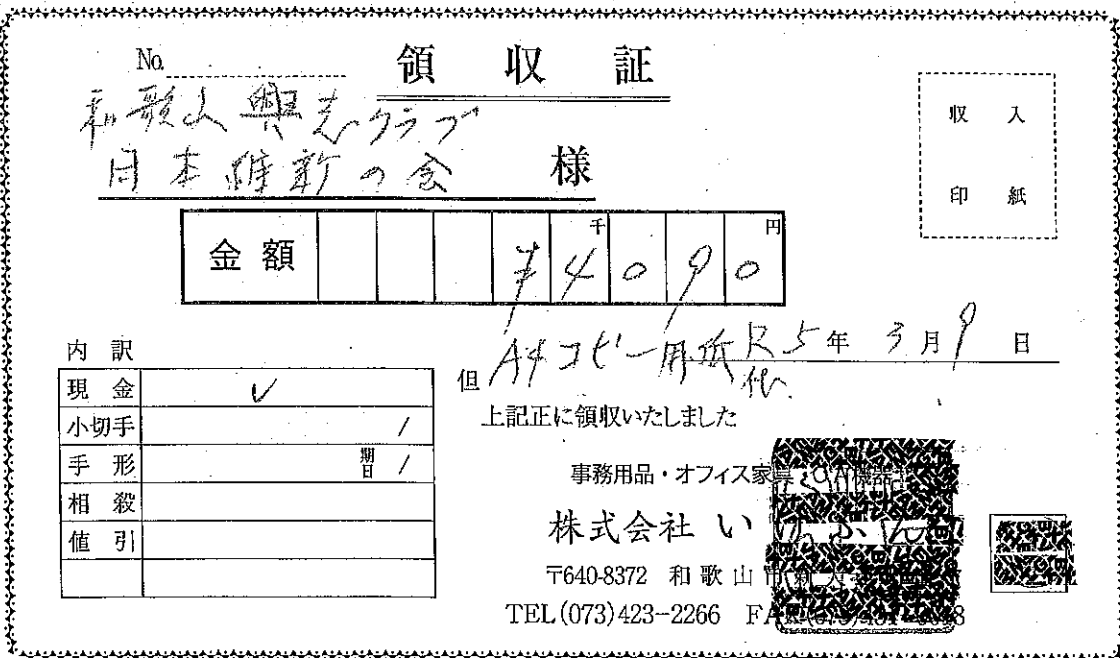 No.
領収証
和歌山興志クラブ
日本維新の会 様
収入
印紙
金額 ¥4090
千 円
R5年3月9日
但 A4コピー用紙代
上記正に領収いたしました
内訳
現金 ✓
小切手 /
手形 期日 /
相殺
値引
事務用品・オフィス家具・OA機器
株式会社 いけぶん
〒640-8372 和歌山市新
TEL(073)423-2266 FAX(073)